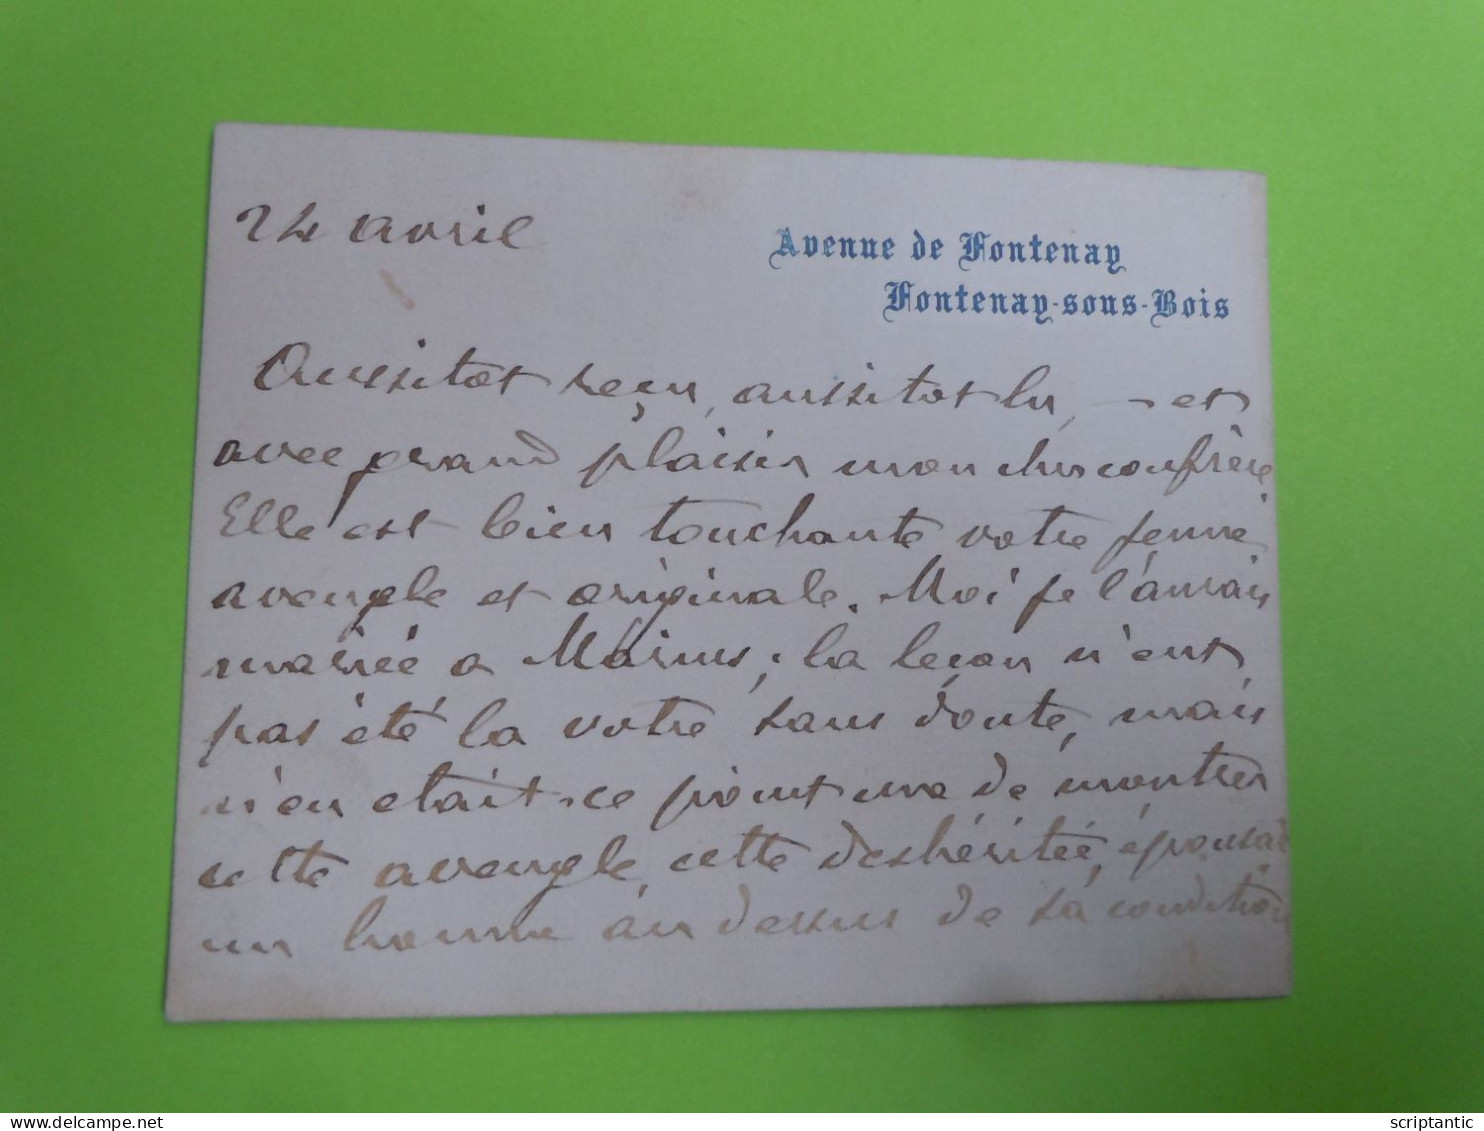 24 avril
Avenue de Fontenay
Fontenay-sous-Bois
Aussitot reçu, aussitot lu, – et
avec grand plaisir mon cher confrère
Elle est bien touchante votre jeune
aveugle et originale. Moi je l'aurais
mariée a Marius, la leçon n'eut
pas été la votre sans doute, mais
n'en était-ce point une de montrer
cette aveugle, cette deshéritée, épousant
un homme au dessus de sa condition
scriptantic